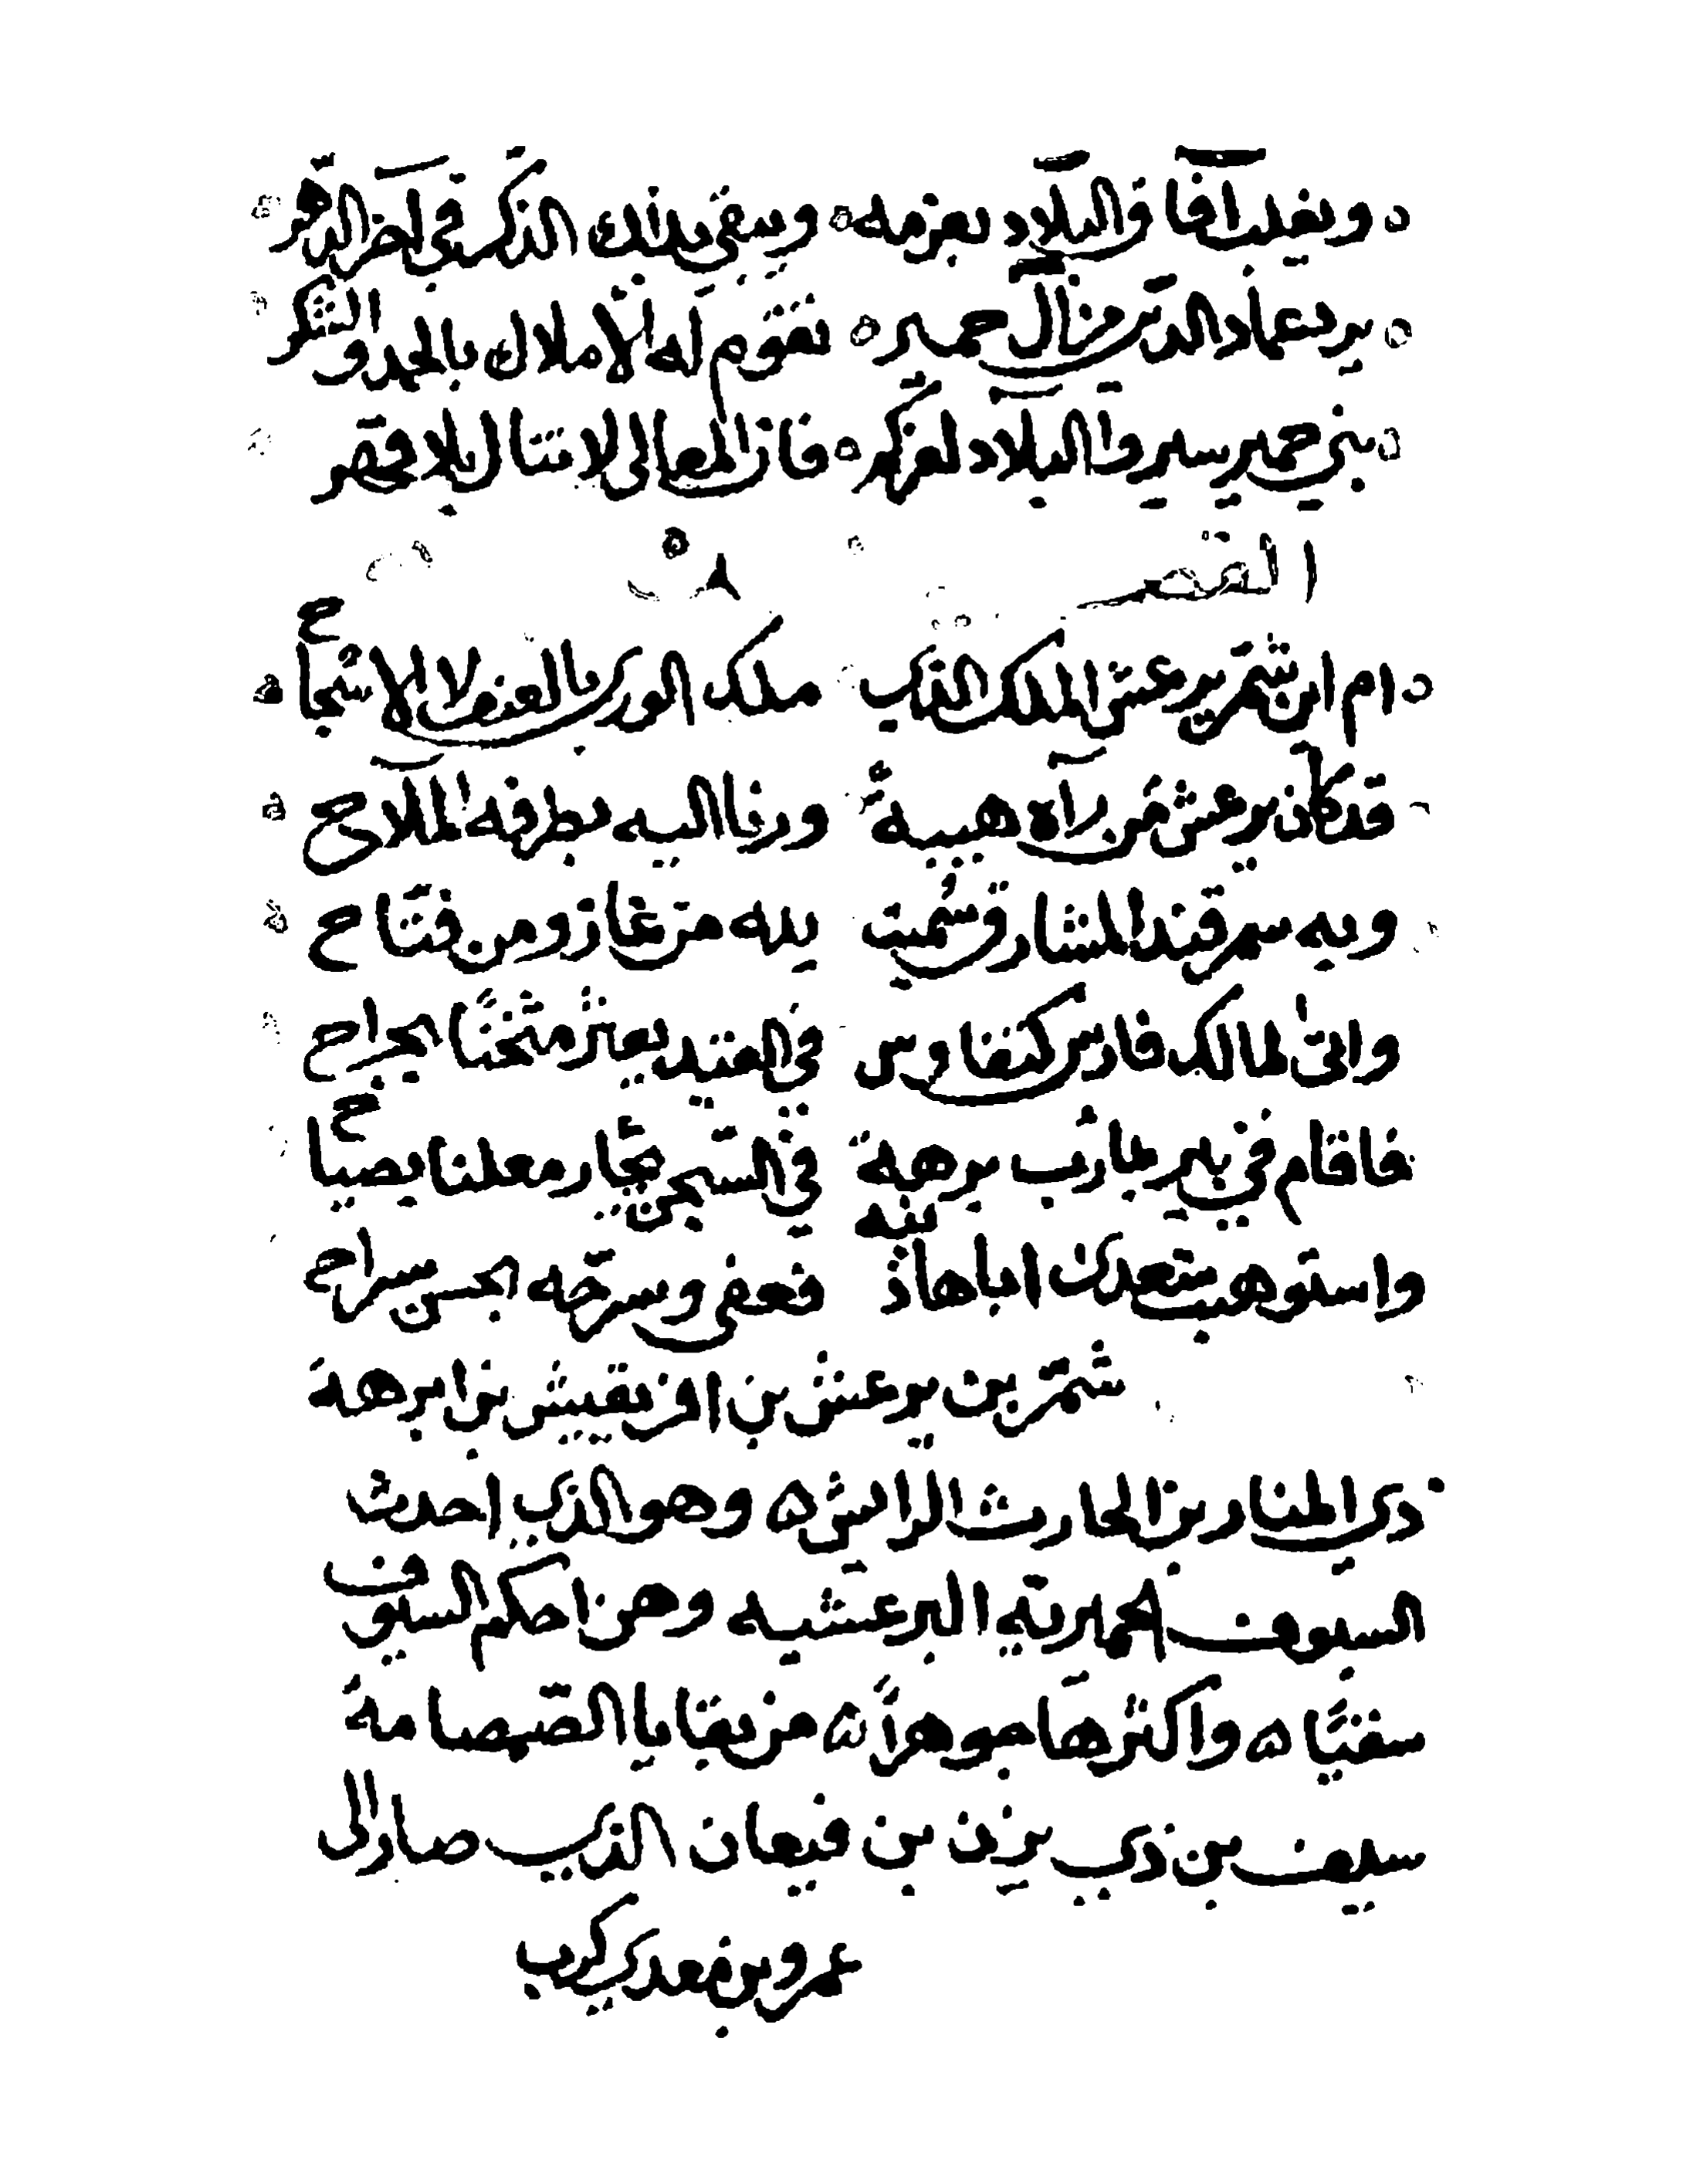 ويغلب آفاق البلاد بعزمه وسيبقى بذاك الذكر في آخر الدهر
يرد عماد الدين من آل حمير تقوم له الاملاك بالحمد والشكر
بني حمير سيروا البلاد لعزكم فان المعالي لا تنال بلا قهر
ام ابن شمر يرعش الملك الذي ملك الورى بالعنف والاسجاح
قد كان يرعش من رآه هيبةً ورنا اليه بطرفه اللماح
وبه سمرقند المشارق سُميت لله من غاز ومن فتّاح
واتى لمالك فارس كيقاوس في القيد يعثر مثخنًا بجراح
فاقام في بير بمارب برهة في السجن يجأر معلنا بصياح
واستوهبت سعدى اباها ذنبه فعفى وسرحه بحسن سراح
شمر بن يرعش بن افريقيش بن ابرهة
ذي المنار بن الحارث الرايش ٥ وهو الذي احدث
السيوف الحميرية البرعشيه وهن احكم السيوف
سقيًا ٥ واكثرها جوهرًا ٥ من بقايا الصمصامة
سيف بن ذي يزن بن قيعان الذي صار الى
عمرو بن معدي كرب